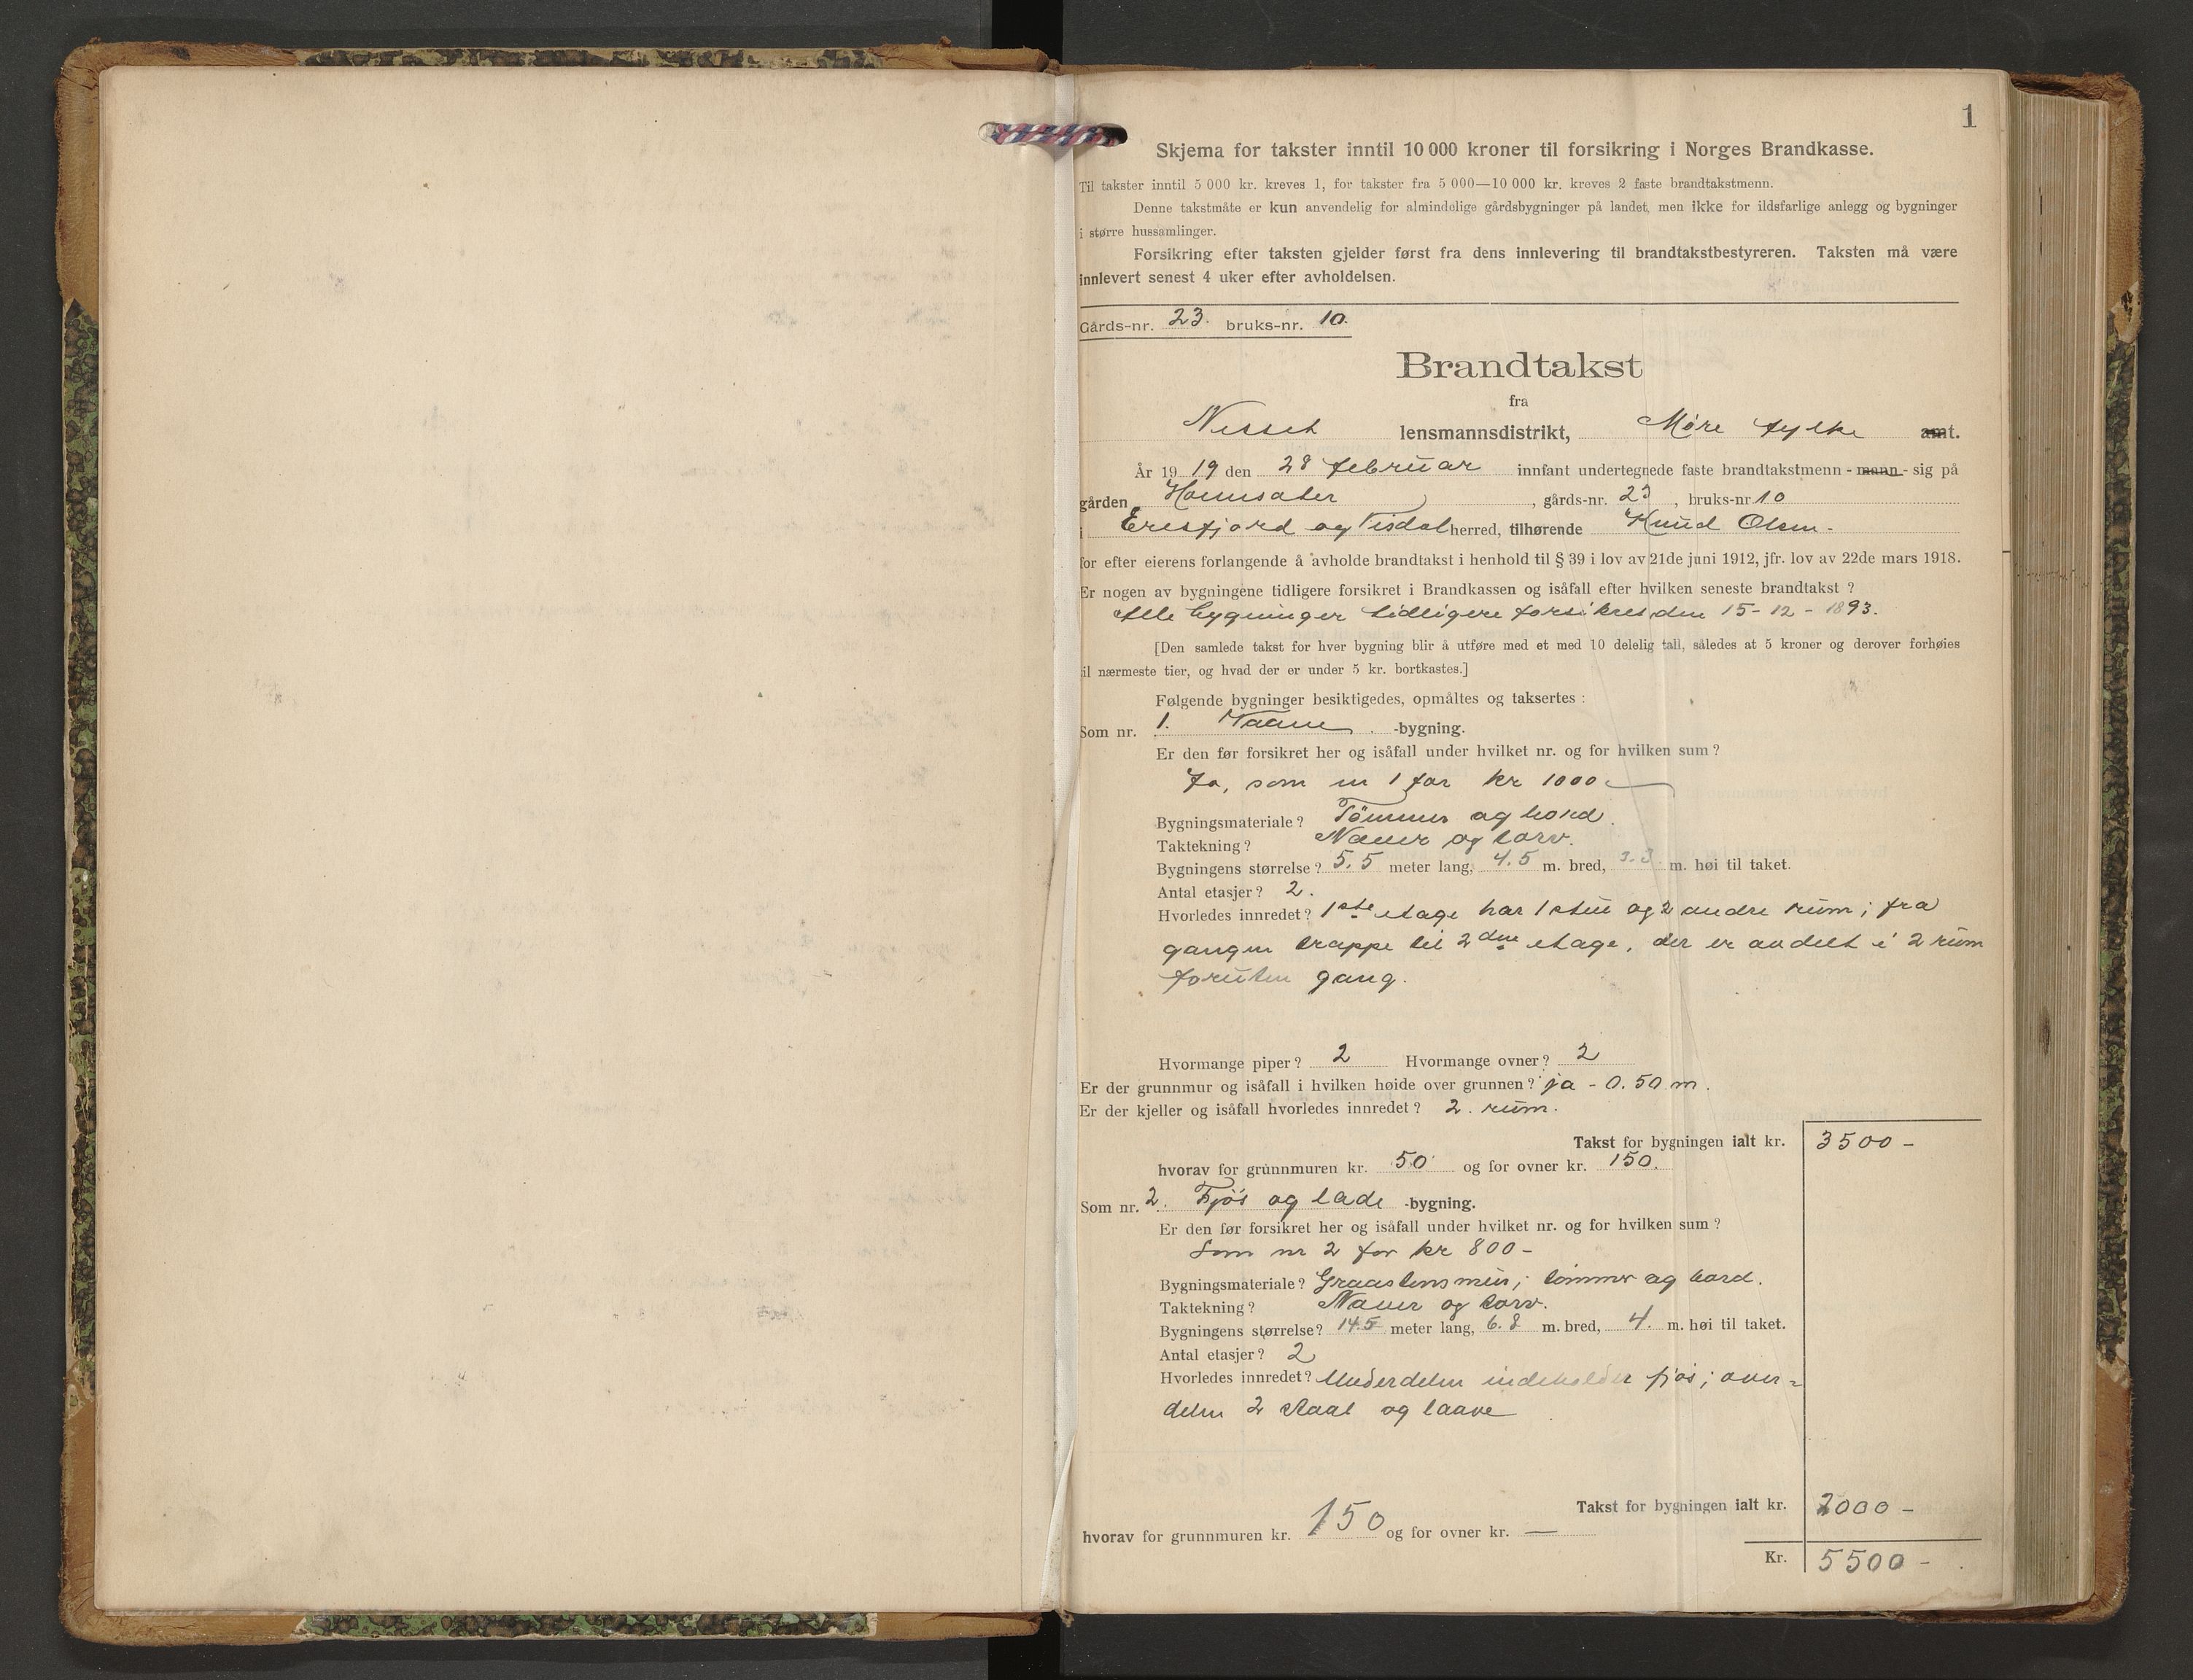 1
Skjema for takster inntil 10 000 kroner til forsikring i Norges Brandkasse.
Til takster inntil 5 000 kr. kreves 1, for takster fra 5 000—10 000 kr. kreves 2 faste brandtakstmenn.
Denne takstmåte er kun anvendelig for almindelige gårdsbygninger på landet, men ikke for ildsfarlige anlegg og bygninger
i større hussamlinger.
Forsikring efter taksten gjelder først fra dens innlevering til brandtakstbestyreren. Taksten må være
innlevert senest 4 uker efter avholdelsen.
Gårds-nr. 23. bruks-nr. 10.
Brandtakst
fra
Nesset lensmannsdistrikt, Møre fylke amt.
År 19 19 den 28 februar innfant undertegnede faste brandtakstmenn - mann - sig på
gården , gårds-nr. 23 , bruks-nr 10
i Eresfjord og Vistdal herred, tilhørende Knud Olsen.
for efter eierens forlangende å avholde brandtakst i henhold til § 39 i lov av 21de juni 1912, jfr. lov av 22de mars 1918.
Er nogen av bygningene tidligere forsikret i Brandkassen og isåfall efter hvilken seneste brandtakst ?
Alle bygninger tidligere forsikret den 15-12-1893.
[Den samlede takst for hver bygning blir å utføre med et med 10 delelig tall, således at 5 kroner og derover forhøies
til nærmeste tier, og hvad der er under 5 kr. bortkastes.]
Følgende bygninger besiktigedes, opmåltes og taksertes :
Som nr. 1. Vaane -bygning.
Er den før forsikret her og isåfall under hvilket nr. og for hvilken sum ?
Ja, som nr 1 for kr 1000.-
Bygningsmateriale ? Tömmer og bord.
Taktekning ? Næver og torv.
Bygningens størrelse ? 5.5 meter lang, 4.5 m. bred, 3.3 m. høi til taket.
Antal etasjer ? 2.
Hvorledes innredet ? 1ste etage har 1 stue og 2 andre rum; fra
gangen trappe til 2den etage, der er avdelt i 2 rum
foruten gang.
Hvormange piper ? 2 Hvormange ovner ? 2
Er der grunnmur og isåfall i hvilken høide over grunnen ? ja - 0.50 m.
Er der kjeller og isåfall hvorledes innredet ? 2. rum.
Takst for bygningen ialt kr. 3500 -
hvorav for grunnmuren kr. 50 og for ovner kr. 150.
Som nr. 2. Fjös og lade -bygning.
Er den før forsikret her og isåfall under hvilket nr. og for hvilken sum ?
Som nr 2 for kr 800 -
Bygningsmateriale ? Graastensmur; tömmer og bord.
Taktekning ? Næver og torv.
Bygningens størrelse ? 14.5 meter lang, 6.8 m. bred, 4. m. høi til taket.
Antal etasjer ? 2
Hvorledes innredet ? Underdelen indeholder fjös; over-
delen 2 staal og laave
Takst for bygningen ialt kr. 2000 -
hvorav for grunnmuren kr. 150 og for ovner kr. —
Kr. 5500 -